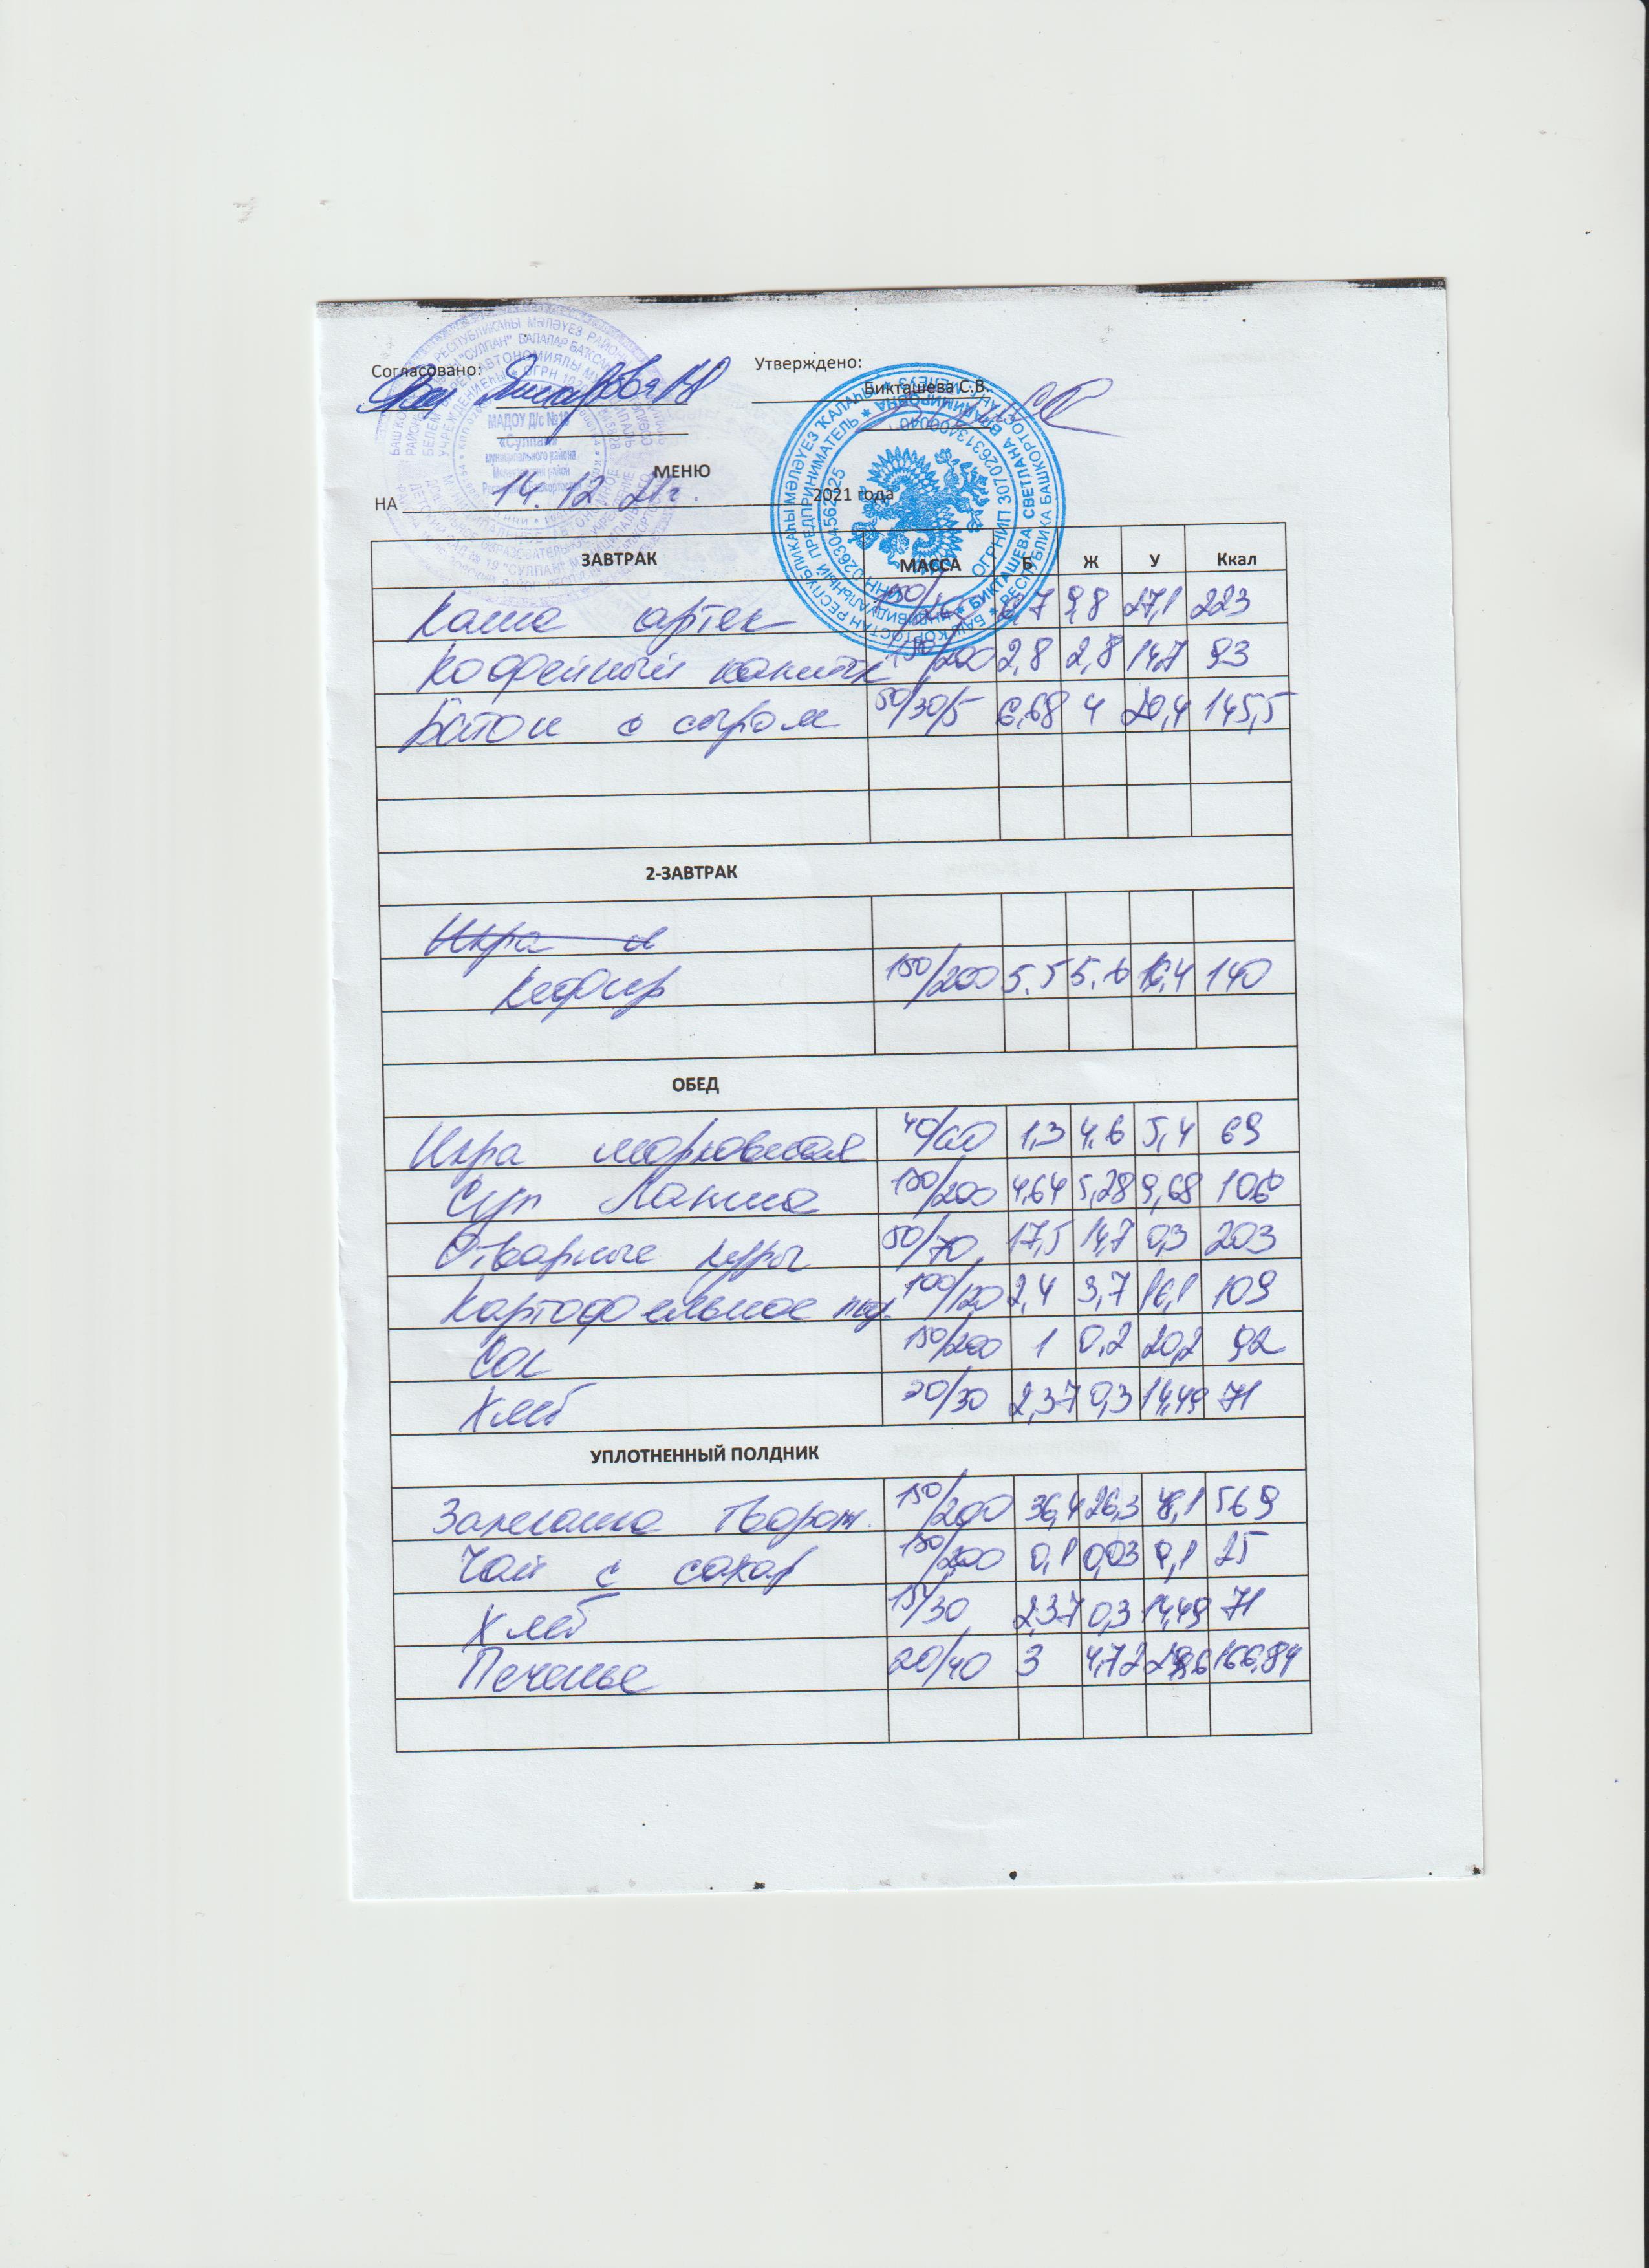 Согласовано:
Утверждено:
Бикташева С.В.
МАДОУ Д/с №19
«Сулпан»
муниципального района
МЕНЮ
НА 14.12.21г. 2021 года
ЗАВТРАК МАССА Б Ж У Ккал
Каша артек 9,8 27,1 223
Кофейный напиток 150/200 2,8 2,8 14,7 93
Батон с сыром 50/30/5 6,68 4 20,4 145,5
2-ЗАВТРАК
Икра
Кефир 150/200 5.5 5.6 16,4 140
ОБЕД
Икра морковная 40/60 1,3 4.6 5,4 69
Суп Лапша 150/200 4,64 5,28 9,68 106
Отварные куры 50/70 17,5 14,7 0,3 203
Картофельное пюр. 100/120 2,4 3,7 16,1 109
Сок 150/200 1 0,2 20,2 92
Хлеб 20/30 2,37 0,3 14,49 71
УПЛОТНЕННЫЙ ПОЛДНИК
Запеканка творож. 150/200 36,4 26,3 48,1 569
Чай с сахар 150/200 0,1 0,03 25
Хлеб 15/30 2,37 0,3 14,49 71
Печенье 20/40 3 4,72 166,84